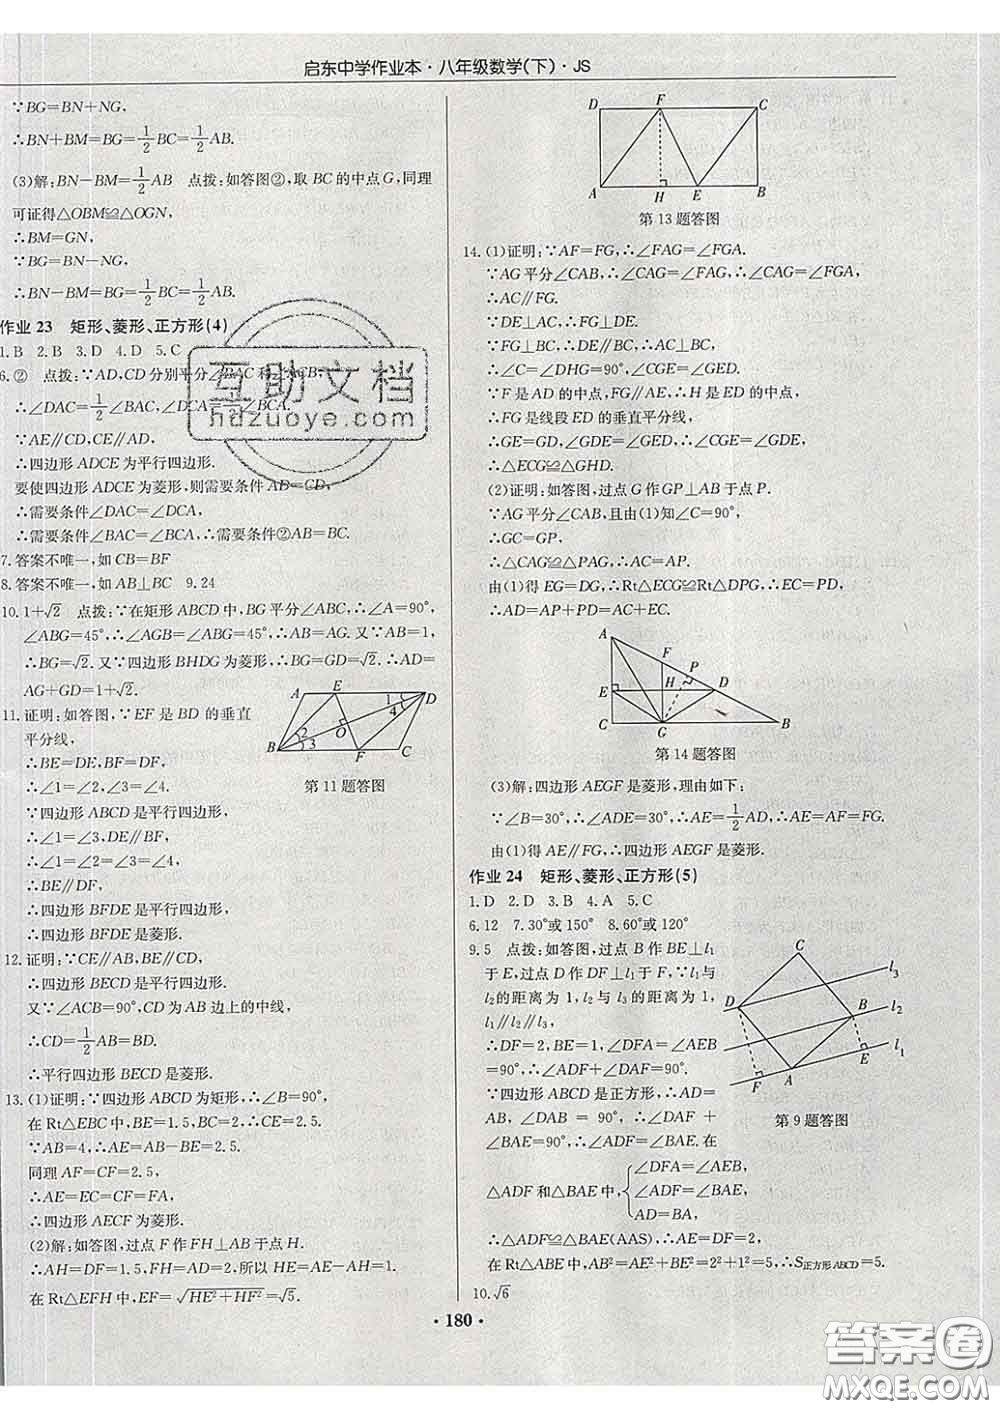 启东中学作业本·八年级数学(下)·JS
∵BG=BN+NG,
∴BN+BM=BG=1/2BC=1/2AB.
(3)解:BN-BM=1/2AB 点拨:如答图②,取BC的中点G,同理
可证得△OBM≌△OGN,
∴BM=GN,
∵BG=BN-NG,
∴BN-BM=BG=1/2BC=1/2AB.
作业23 矩形、菱形、正方形(4)
1.B 2.B 3.D 4.D 5.C
6.② 点拨:∵AD,CD分别平分∠BAC和∠ACB,
∴∠DAC=1/2∠BAC,∠DCA=1/2∠BCA.
∵AE∥CD,CE∥AD,
∴四边形ADCE为平行四边形.
要使四边形ADCE为菱形,则需要条件AD=CD,
∴需要条件∠DAC=∠DCA,
∴需要条件∠BAC=∠BCA,∴需要条件②AB=BC.
7.答案不唯一,如CB=BF
8.答案不唯一,如AB⊥BC 9.24
10.1+√2 点拨:∵在矩形ABCD中,BG平分∠ABC,∴∠A=90°,
∠ABG=45°,∴∠AGB=∠ABG=45°,∴AB=AG.又∵AB=1,
∴BG=√2.又∵四边形BHDG为菱形,∴BG=GD=√2,∴AD=
AG+GD=1+√2.
11.证明:如答图,∵EF是BD的垂直
平分线,
∴BE=DE,BF=DF,
∴∠1=∠2,∠3=∠4.
∵四边形ABCD是平行四边形,
∴∠1=∠3,DE∥BF,
∴∠2=∠4,
∴BE∥DF,
∴四边形BFDE是平行四边形,
∴四边形BFDE是菱形.
A E D B F C O 1 2 3 4
第11题答图
12.证明:∵CE∥AB,BE∥CD,
∴四边形BECD是平行四边形.
又∵∠ACB=90°,CD为AB边上的中线,
∴CD=1/2AB=BD.
∴平行四边形BECD是菱形.
13.(1)证明:∵四边形ABCD为矩形,∴∠B=90°,
在Rt△EBC中,BE=1.5,BC=2,∴EC=2.5.
∵AB=4,∴AE=AB-BE=2.5.
同理AF=CF=2.5,
∴AE=EC=CF=FA,
∴四边形AECF为菱形.
(2)解:如答图,过点F作FH⊥AB于点H.
∴AH=DF=1.5,FH=AD=2,所以HE=AE-AH=1.
在Rt△EFH中,EF=√(HE²+HF²)=√5.
D F C A H E B
第13题答图
14.(1)证明:∵AF=FG,∴∠FAG=∠FGA.
∵AG平分∠CAB,∴∠CAG=∠FAG,∴∠CAG=∠FGA,
∴AC∥FG.
∵DE⊥AC,∴FG⊥DE.
∵FG⊥BC,∴DE∥BC,∴AC⊥BC,
∴∠C=∠DHG=90°,∠CGE=∠GED.
∵F是AD的中点,FG∥AE,∴H是ED的中点,
∴FG是线段ED的垂直平分线,
∴GE=GD,∠GDE=∠GED,∴∠CGE=∠GDE,
∴△ECG≌△GHD.
(2)证明:如答图,过点G作GP⊥AB于点P.
∵AG平分∠CAB,且由(1)知∠C=90°,
∴GC=GP,
∴△CAG≌△PAG,∴AC=AP.
由(1)得EG=DG,∴Rt△ECG≌Rt△DPG,∴EC=PD,
∴AD=AP+PD=AC+EC.
A F P E H D C G B
第14题答图
(3)解:四边形AEGF是菱形,理由如下:
∵∠B=30°,∴∠ADE=30°,∴AE=1/2AD,∴AE=AF=FG.
由(1)得AE∥FG,∴四边形AEGF是菱形.
作业24 矩形、菱形、正方形(5)
1.D 2.D 3.B 4.A 5.C
6.12 7.30°或150° 8.60°或120°
9.5 点拨:如答图,过点B作BE⊥l₁
于E,过点D作DF⊥l₁于F,∵l₁与
l₂的距离为1,l₂与l₃的距离为1,
l₁∥l₂∥l₃,
∴DF=2,BE=1,∠DFA=∠AEB
=90°,∴∠ADF+∠DAF=90°.
∵四边形ABCD是正方形,∴AD=
AB,∠DAB=90°,∴∠DAF+
∠BAE=90°,∴∠ADF=∠BAE.在
△ADF和△BAE中,{∠DFA=∠AEB,
∠ADF=∠BAE,
AD=BA,
∴△ADF≌△BAE(AAS),∴AE=DF=2,
在Rt△ABE中,AB²=AE²+BE²=2²+1²=5,∴S正方形ABCD=5.
C D B F A E l₃ l₂ l₁
第9题答图
10.√6
·180·
互助文档
hdzuoye.com
答案卷
MXQE.COM